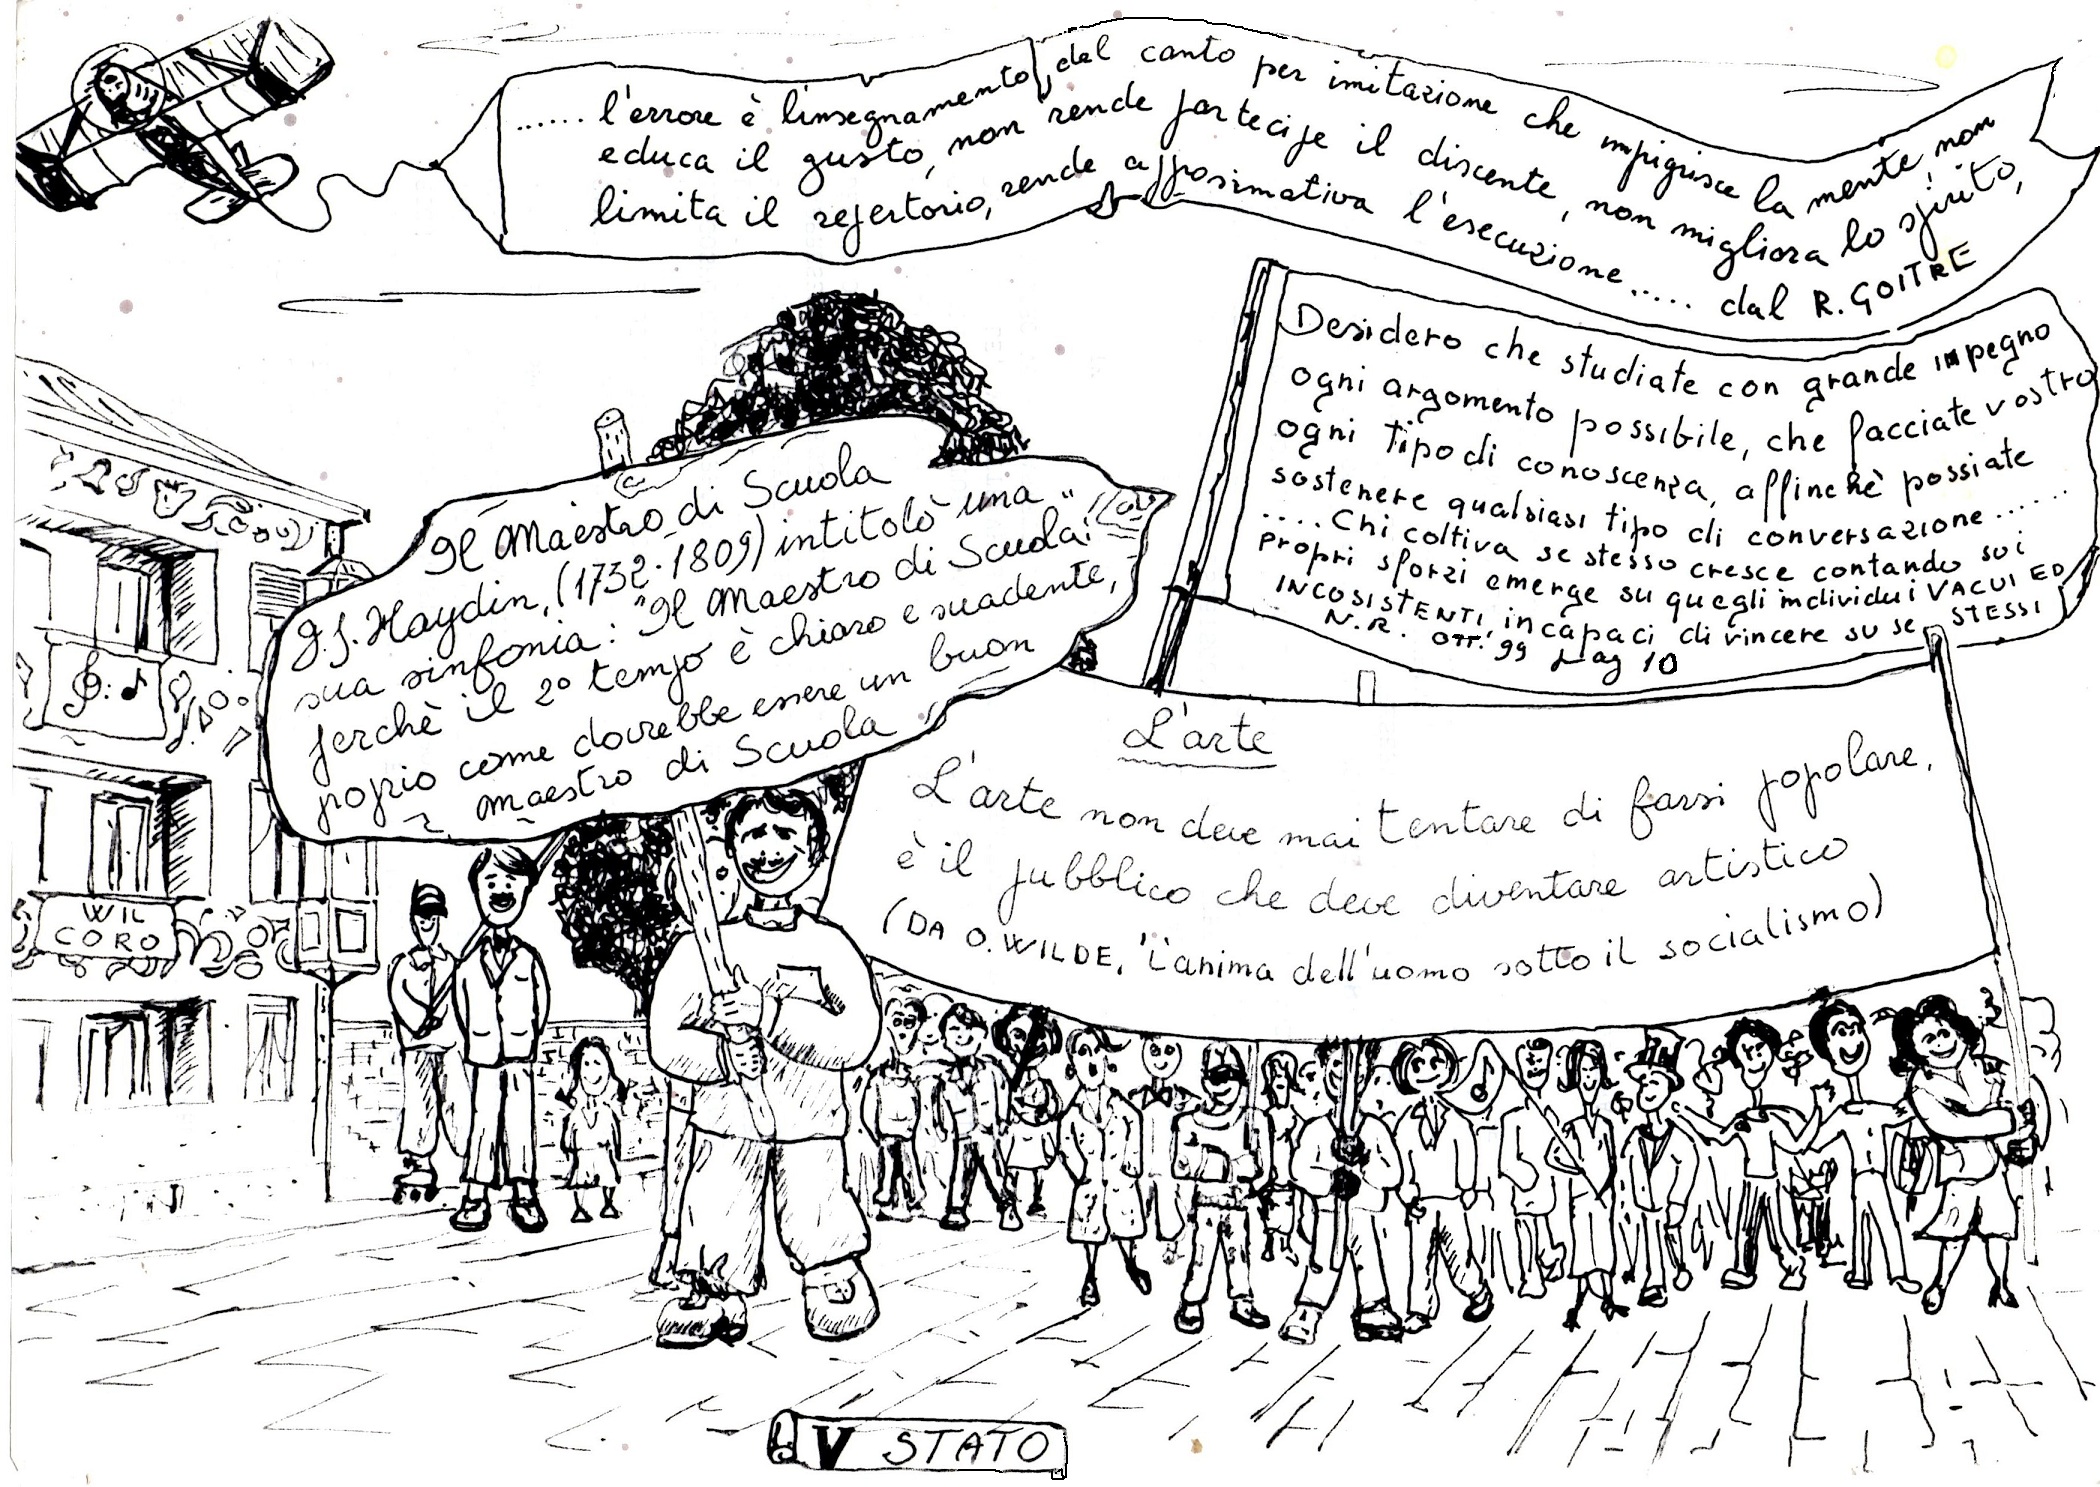 ...... l'errore è l'insegnamento, del canto per imitazione che impigrisce la mente, non
educa il gusto, non rende partecipe il discente, non migliora lo spirito,
limita il repertorio, rende approssimativa l'esecuzione..... dal R. GOITRE
Desidero che studiate con grande impegno
ogni argomento possibile, che facciate vostro
ogni tipo di conoscenza, affinchè possiate
sostenere qualsiasi tipo di conversazione......
.... Chi coltiva se stesso cresce contando sui
propri sforzi emerge su quegli individui VACUI ED
INCOSISTENTI, incapaci di vincere su se STESSI
N.R. OTT. 99 pag 10
Il Maestro di Scuola
J.J. Haydin, (1732-1809) intitolò una
sua sinfonia: "Il Maestro di Scuola"
perchè il 2° tempo è chiaro e suadente,
proprio come dovrebbe essere un buon
maestro di Scuola
L'arte
L'arte non deve mai tentare di farsi popolare,
è il pubblico che deve diventare artistico
(DA O. WILDE, "L'anima dell'uomo sotto il socialismo)
W IL
CORO
V STATO